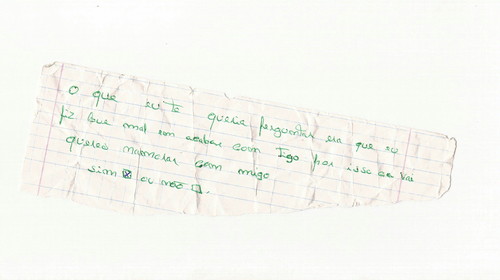 O que eu te queria perguntar era que eu
fiz que mal em acabar com Tigo por isso se vai
queres namorar com migo
sim ☒ ou não ☐.